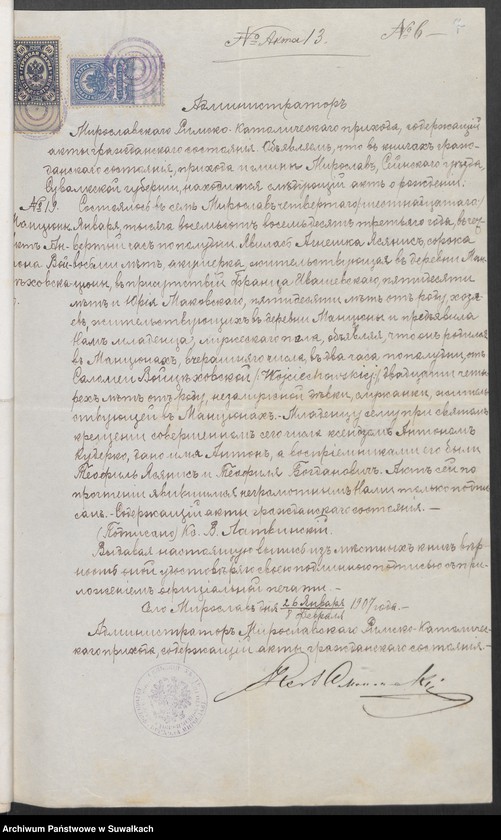 № Акта 13.
№ 6 —
Администраторъ
Мирославскаго Римско-Католическаго прихода, содержащій
акты гражданскаго состоянія. Объявляетъ, что въ книгахъ граж-
данскаго состоянія, прихода и Мирославъ, Сейнскаго уѣзда,
Сувалкской губерніи, находится слѣдующій актъ о рожденіи:
№ 19. Состоялось въ селѣ Мирославѣ четвертаго /шестнадцатаго/
Января, тысяча восемьсотъ восемьдесятъ третьяго года, въ чет-
вертый часъ по полудни. Явилась Агнешка Лсянисъ, сорока
восьми лѣтъ, акушерка жительствующая въ деревни
въ присутствіи Франца Ивашевскаго, пятидесяти
лѣтъ и Юрія Маковскаго, пятидесяти лѣтъ отъ роду, хозя
евъ, жительствующихъ въ деревни Манцюны и предъявила
Намъ младенца, мужескаго пола, объявляя, что онъ родился
въ Манцюнахъ, вчерашняго числа, въ два часа по полудни, отъ
Саломеи Войцѣховской /Wojciechowskiej/ двадцати четы
рехъ лѣтъ отъ роду, незамужней дѣвки, служанки, житель
ствующей въ Манцюнахъ. Младенцу сему при святомъ
крещеніи совершенномъ сего числа ксендзомъ Антономъ
Кудерко, дано имя Антонъ, а воспріемниками его были
Теофиль и Теофиля Богдановичъ. Актъ сей по
прочтеніи явившимся неграмотнымъ Нами только подпи
санъ. Содержащій акты гражданскаго состоянія. —
(Подписано) Кс. В. Латвинскій.
Выдавая настоящую выпись изъ мѣстныхъ книгъ вѣр-
ность оной удостовѣряю своею подлинною подписью съ при-
ложеніемъ оффиціальной печати. —
Село Мирославъ дня 26 Января / 8 Февраля 1907 года. —
Администраторъ Мирославскаго Римско-Католичес-
каго прихода, содержащій акты гражданскаго состоянія —
Archiwum Państwowe w Suwałkach